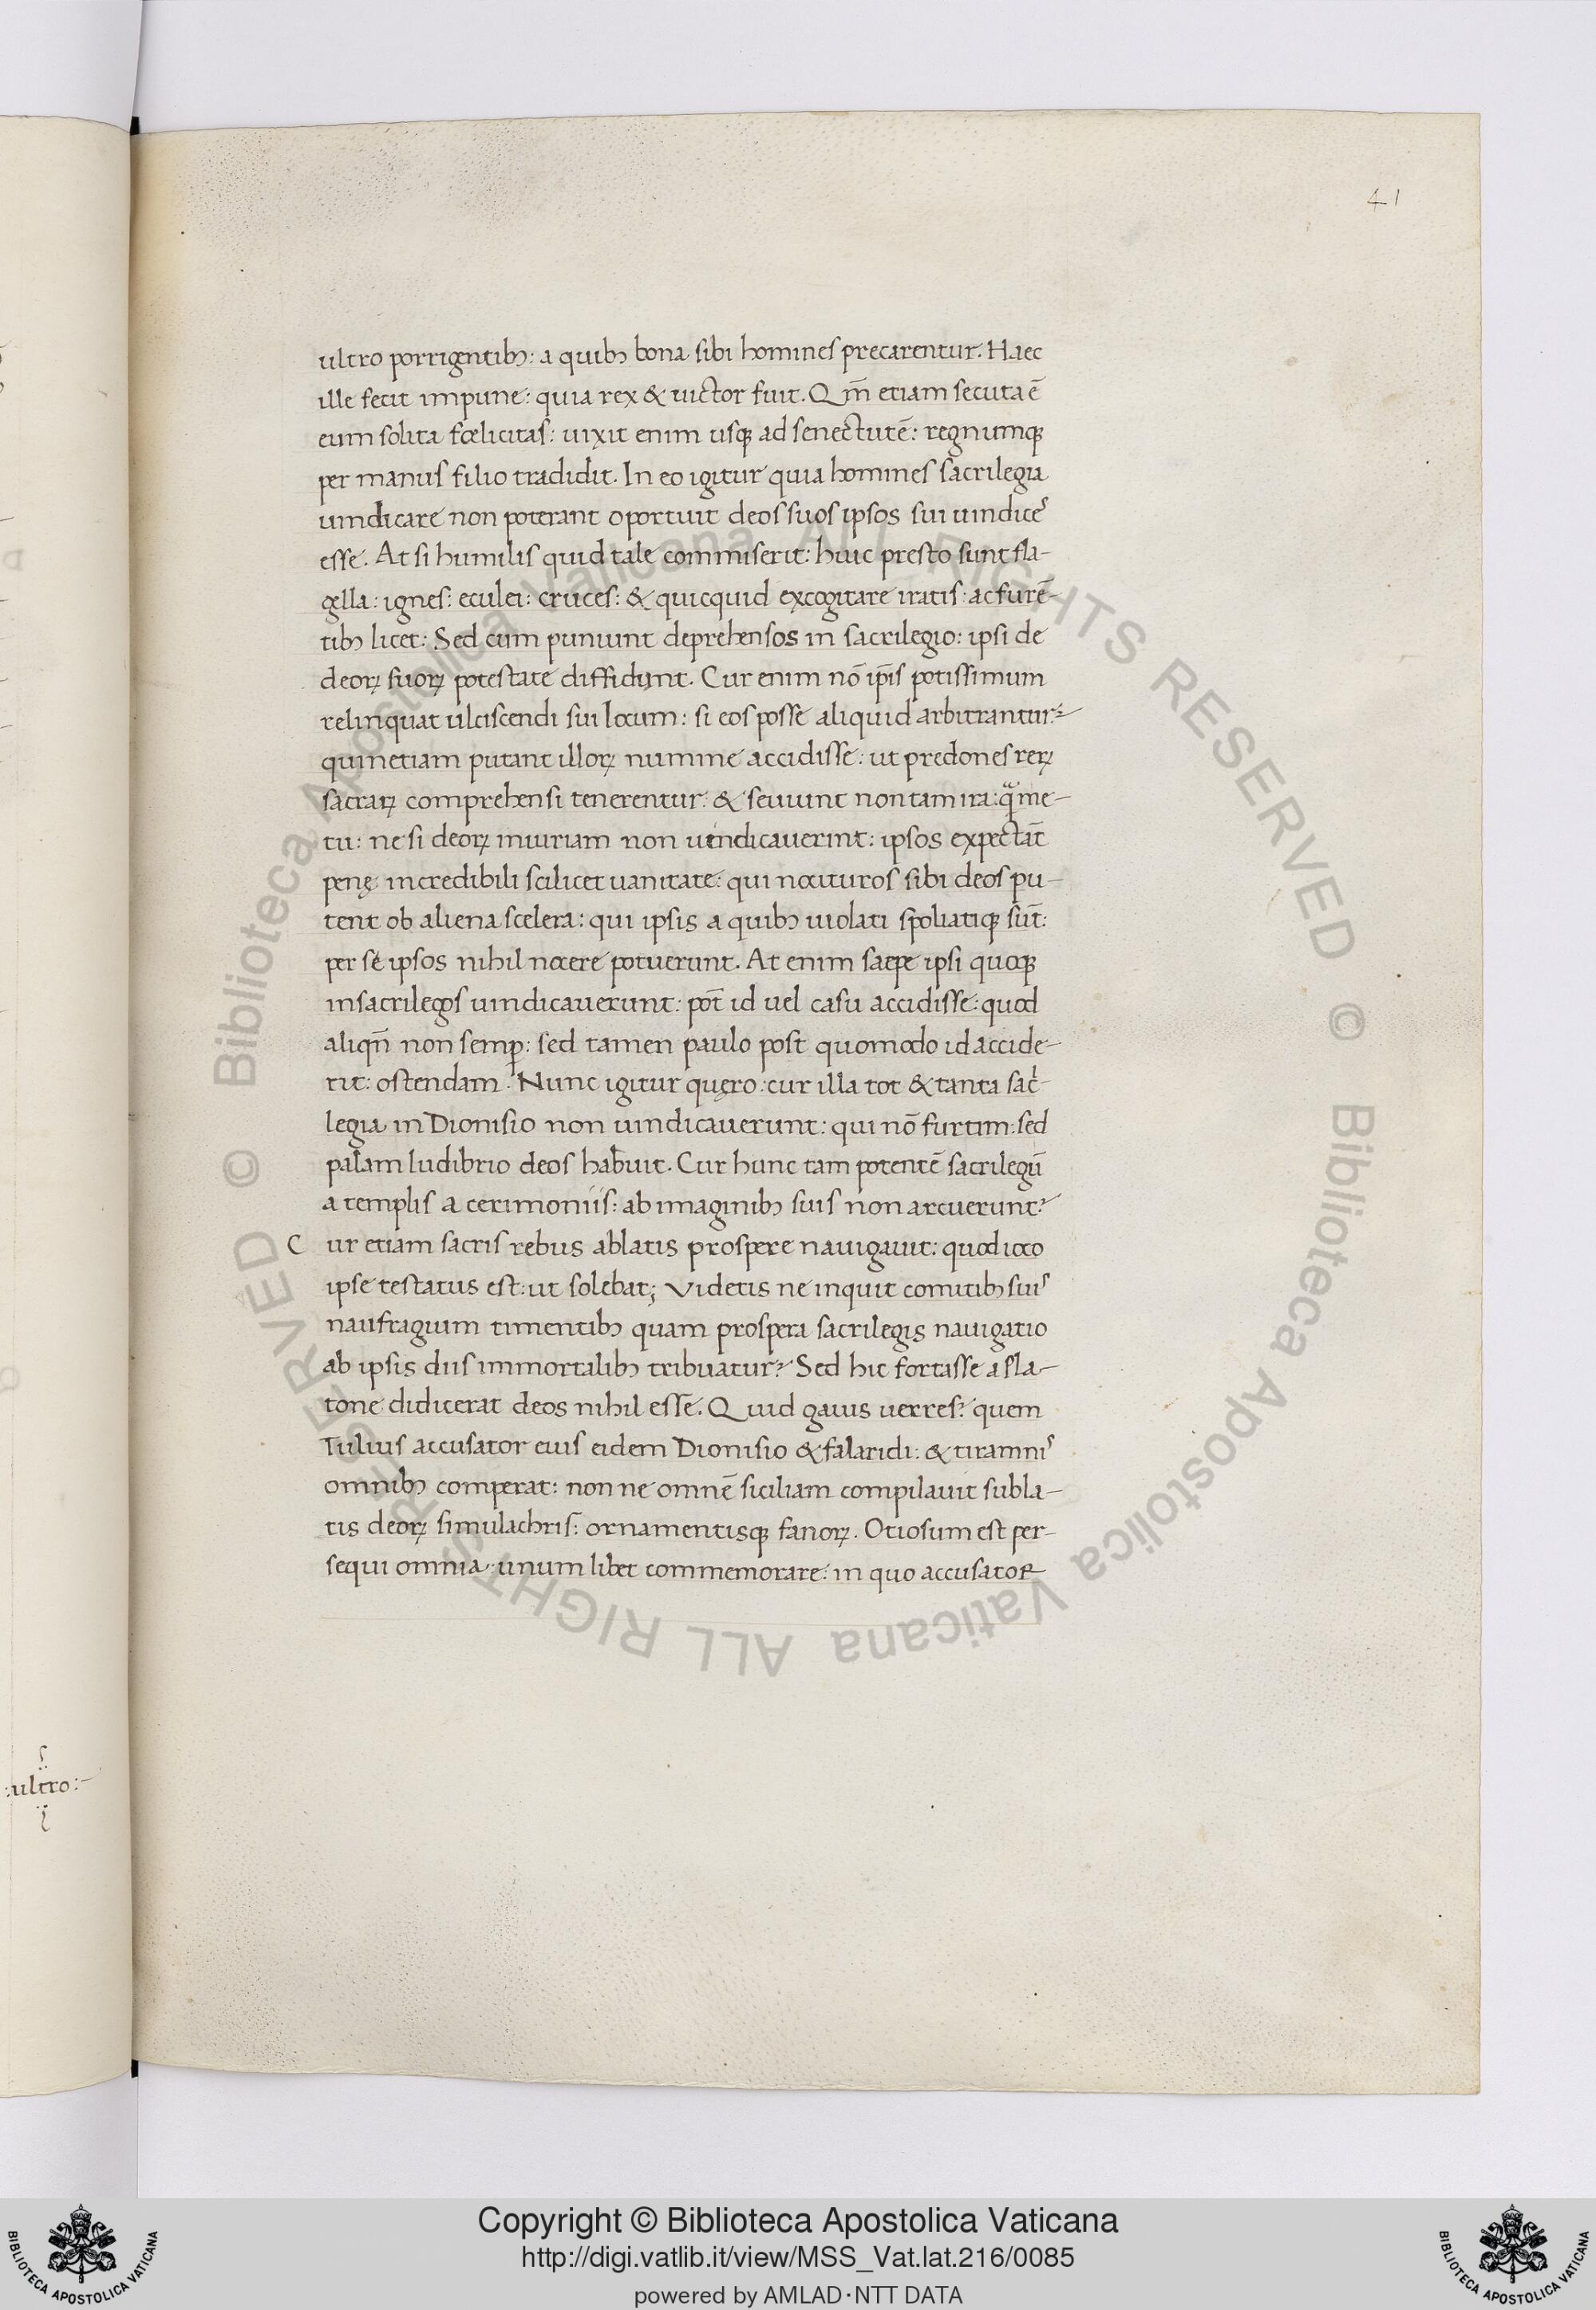 41
ultro porrigentibꝫ: a quibꝫ bona sibi homines precarentur. Haec
ille fecit impune: quia rex & uictor fuit. Qm̄ etiam secuta ē
eum solita fœlicitas: uixit enim usqꝫ ad senectutē: regnumqꝫ
per manus filio tradidit. In eo igitur quia homines sacrilegia
uindicare non poterant oportuit deos suos ipsos sui uindices
esse. At si humilis quid tale commiserit: huic presto sunt fla-
gella: ignes: eculei: cruces: & quicquid excogitare iratis: ac furē-
tibꝫ licet: Sed cum puniunt deprehensos in sacrilegio: ipsi de
deoꝝ suoꝝ potestate diffidunt. Cur enim nō ip̄is potissimum
relinquat ulciscendi sui locum: si eos posse aliquid arbitrantur?
quinetiam putant illoꝝ numine accidisse: ut predones reꝝ
sacraꝝ comprehensi tenerentur: & seuiunt non tam ira: qᵃ̄ me-
tu: ne si deoꝝ iniuriam non uindicauerint: ipsos expectāt
penę: incredibili scilicet uanitate: qui nocituros sibi deos pu-
tent ob aliena scelera: qui ipsis a quibꝫ uiolati spoliatiqꝫ sūt:
per se ipsos nihil nocere potuerunt. At enim saepe ipsi quoqꝫ
in sacrilegos uindicauerunt: pōt id uel casu accidisse: quod
aliqn̄ non semꝑ: sed tamen paulo post quomodo id accide-
rit: ostendam. Nunc igitur quęro: cur illa tot & tanta sacͥ-
legia in Dionisio non uindicauerunt: qui nō furtim: sed
palam ludibrio deos habuit. Cur hunc tam potentē sacrilegū
a templis a cerimoniis: ab imaginibꝫ suis non arcuerunt?
C ur etiam sacris rebus ablatis prospere nauigauit: quod ioco
ipse testatus est: ut solebat; Videtis ne inquit comitibꝫ suis
naufragium timentibꝫ quam prospera sacrilegis nauigatio
ab ipsis diis immortalibꝫ tribuatur? Sed hic fortasse a Pla-
tone didicerat deos nihil esse. Quid gaius uerres? quem
Tulius accusator eius eidem Dionisio & falaridi: & tiramnis
omnibꝫ comperat: non ne omnē siciliam compilauit subla-
tis deoꝝ simulachris: ornamentisqꝫ fanoꝝ. Otiosum est per-
sequi omnia: unum libet commemorare: in quo accusator
:ultro:-
© Biblioteca Apostolica Vaticana ALL RIGHTS RESERVED © Biblioteca Apostolica Vaticana ALL RIGHTS RESERVED
Copyright © Biblioteca Apostolica Vaticana
http://digi.vatlib.it/view/MSS_Vat.lat.216/0085
powered by AMLAD·NTT DATA
BIBLIOTECA APOSTOLICA VATICANA
BIBLIOTECA APOSTOLICA VATICANA